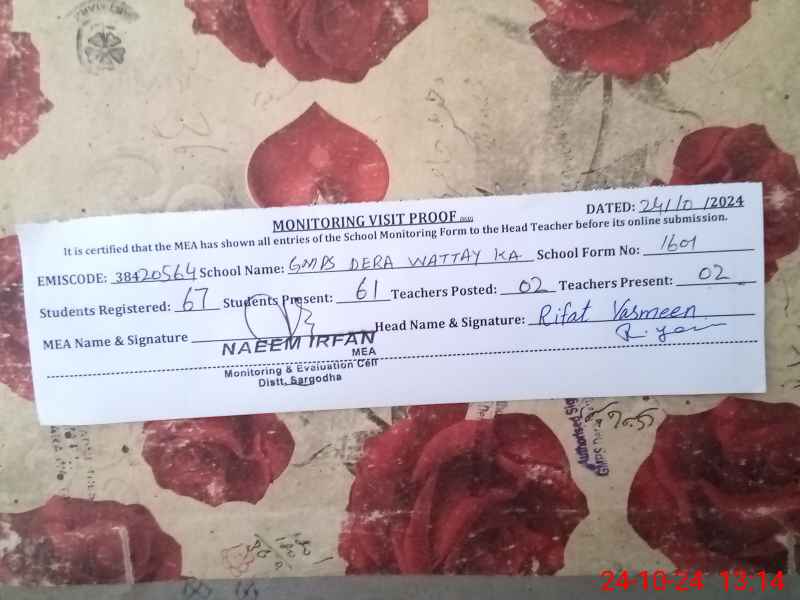 MONITORING VISIT PROOF
DATED: 24/10/2024
It is certified that the MEA has shown all entries of the School Monitoring Form to the Head Teacher before its online submission.
EMISCODE: 38420564 School Name: GMPS DERA WATTAY KA School Form No: 1601
Students Registered: 67 Students Present: 61 Teachers Posted: 02 Teachers Present: 02
MEA Name & Signature Head Name & Signature: Rifat Yasmeen
NAEEM IRFAN
MEA
Monitoring & Evaluation Cell
Distt. Sargodha
24-10-24 13:14